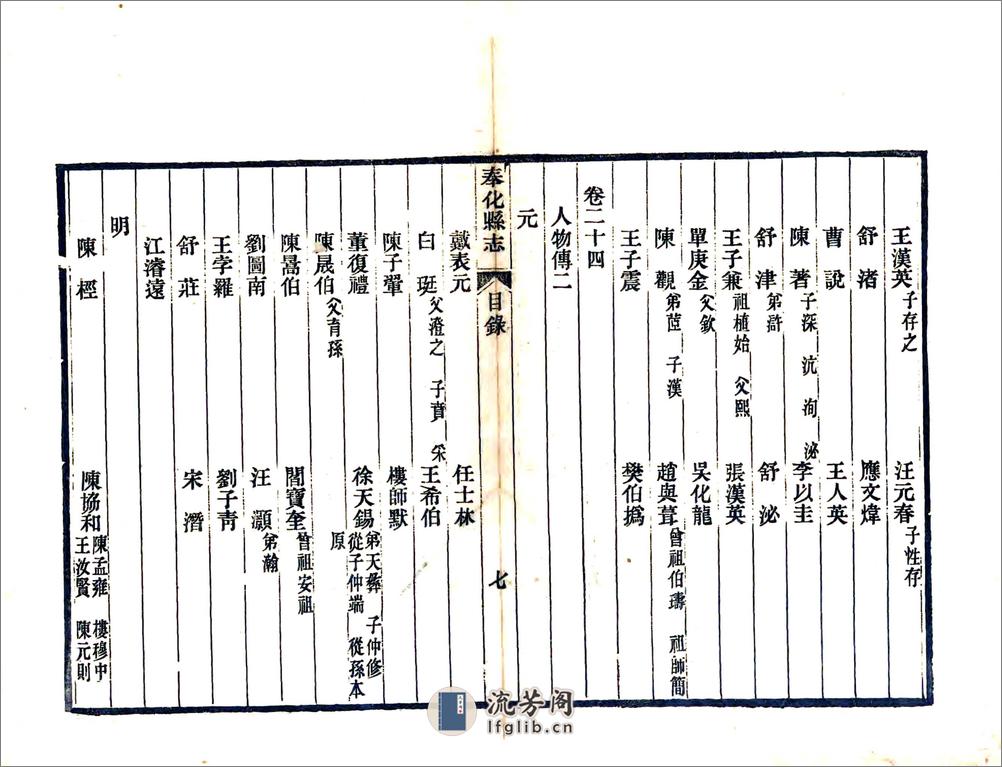 王漢英 子存之 汪元春 子性存
舒渚 應文煒
曹說 王人英
陳著 子深 沆 洵 泌 李以圭
舒津 弟滸 舒泌
王子兼 祖植始 父熙 張漢英
單庚金 父欽 吳化龍
陳觀 弟茝 子漢 趙與葺 曾祖伯璹 祖師簡
王子震 樊伯撝
卷二十四
人物傳二
元
奉化縣志 目錄 七
戴表元 任士林
白珽 父澄之 子賁 采 王希伯
陳子翬 樓師默
董復禮 徐天錫 弟天彝 子仲修 從子仲端 從孫本原
陳晟伯 父育孫
陳暠伯 閻寶奎 曾祖安祖
劉圖南 汪灝 弟瀚
王孛羅 劉子青
舒莊 宋濳
江濬遠
明
陳桱 陳協和 陳孟雍 樓穆中 王汝賢 陳元則
流芳阁
lfglib.cn